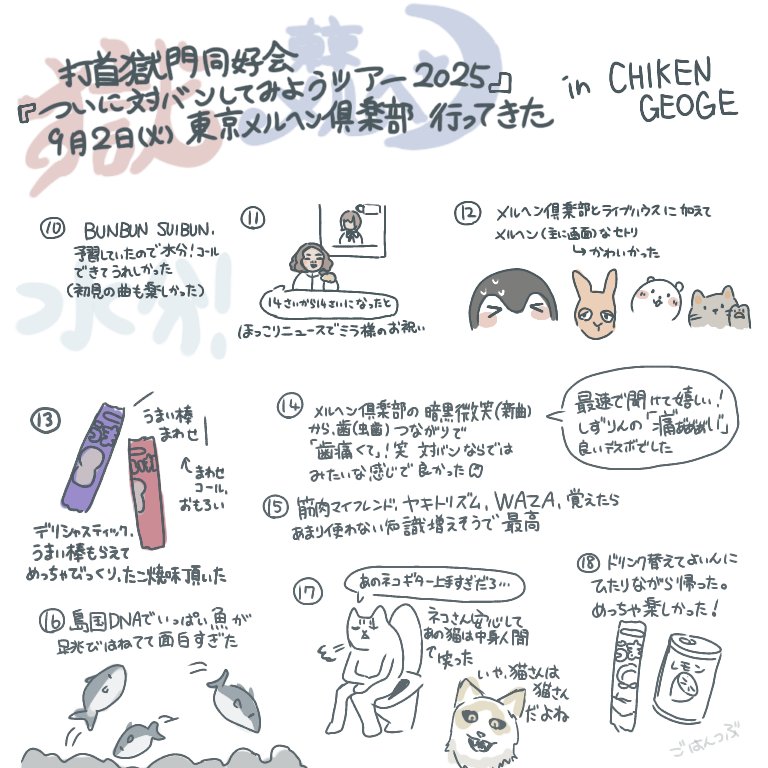 打首獄門同好会
『ついに対バンしてみようツアー2025』
9月2日(火) 東京メルヘン倶楽部 行ってきた
in CHIKEN
GEOGE
⑩ BUNBUN SUIBUN.
予習していたので水分!コール
できてうれしかった
(初見の曲も楽しかった)
水分!
⑪
14さいから14さいになったと
ほっこりニュースでミラ様のお祝い
⑫ メルヘン倶楽部とライブハウスに加えて
メルヘン(主に画面)なセトリ
↳かわいかった
⑬
うまい棒
まわせ
↑まわせ
コール、
おもろい
デリシャスティック、
うまい棒もらえて
めっちゃびっくり、たこ焼味頂いた
⑭ メルヘン倶楽部の暗黒微笑(新曲)
から、歯(虫歯)つながりで
「歯痛くて」!笑 対バンならでは
みたいな感じで良かった
最速で聞けて嬉しい!
しずりんの「痛ああぁい」
良いデスボでした
⑮ 筋肉マイフレンド、ヤキトリズム、WAZA、覚えたら
あまり使わない知識増えそうで最高
⑯ 島国DNAでいっぱい魚が
飛びはねてて面白すぎた
⑰
あのネコギター上手すぎだろ…
ネコさん安心して
あの猫は中身人間
で笑った
いや、猫さんは
猫さん
だよね
⑱ ドリンク替えてよいんに
ひたりながら帰った。
めっちゃ楽しかった!
レモン
ごはんつぶ